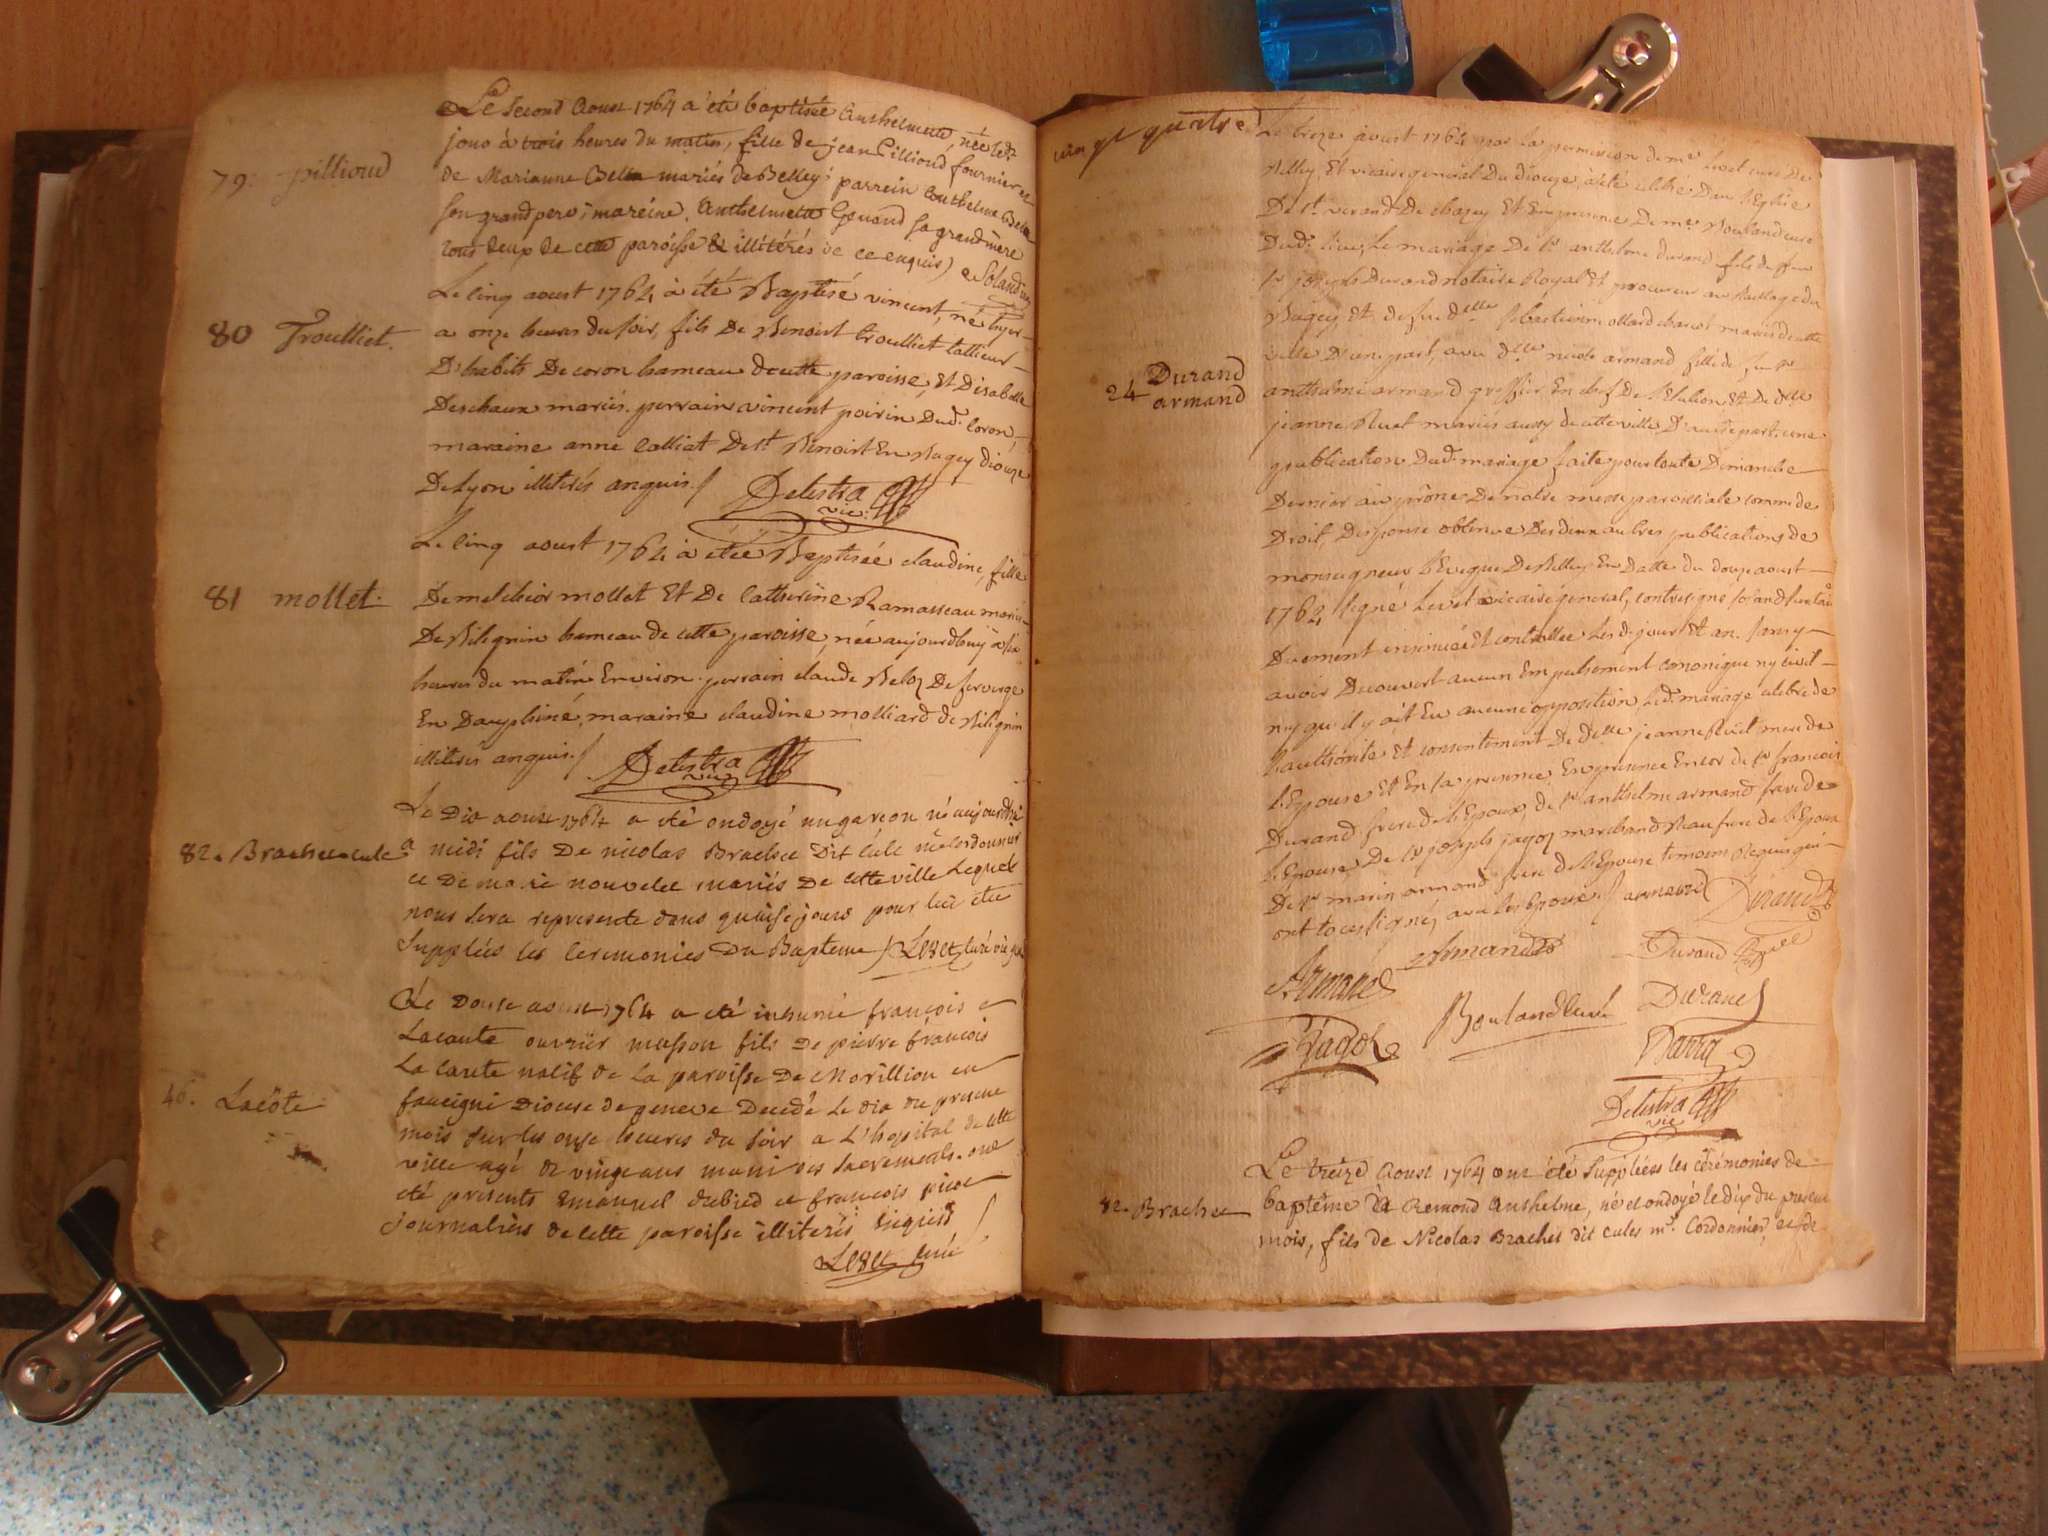 Le second Aoust 1764 a été baptisée Anthelmette, née led.
jour à trois heures du matin, fille de jean Pilliond fournier et
79. pilliond
de Marianne Bella mariés de Belley; parrein Anthelme Bella
son grand pere, mareine Anthelmette Genand sa grandmère
tous deux de cette paroisse & illitérés de ce enquis) Soland vic
Le cinq aoust 1764 à été Baptisé vincent, né hyer
80 Troulliet.
a onze heures du soir, fils De Benoist troulliet tallieur
D'habits De coron hameau de cette paroisse, et D'isabelle
Deschaux mariés. perrain vincent poirin Dud. Coron,
maraine anne Calliat De st Benoist En Bugey diocèze
De Lyon illiterés anquis./ Delestra
vic.
Le cinq aoust 1764 à étée Baptisée claudine, fille
81 mollet.
De melchior mollet Et De Catherine Ramasseau mariés
De Bilignin hameau de cette paroisse, née aujourdhuy à six
heures du matin Environ. perrain claude Beloz De
En Dauphiné, maraine claudine molliard de Bilignin
illiterés anquis./ Delestra
vic
Le Dix aoust 1764 a été ondoyé un garcon né aujourdhui
82. Brachet cule
a midi fils De nicolas Brachet Dit Cule me Cordonnier
et De marie nouvelet mariés De cette ville Lequel
nous sera representé dans quinse jours pour lui etre
Supplées les Ceremonies Du Bapteme / Levet curé vic gl
Le Douse aoust 1764 a eté inhumé françois
Lacoute ouvrier masson fils De pierre françois
La Coute natif de La paroisse De Morillion en
46. Lacôte
faucigni Diocese de geneve Decedé Le dix du present
mois sur les onse heures du soir a L'hopital de cette
ville agé de vingt ans muni des sacrements. ont
eté presents Emanuel debied et françois picot
Journaliers de cette paroisse illiterés enquis /
Levet curé
vingt quatre
Le treze àoust 1764 par La permission de mr Levet curé De
Belley Et vicaire general Du diocèze, à été célébré Dans l'Eglise
De st. verand De chazey Et En presence De mr. Bouland curé
Dud. lieu, Le mariage De sr anthelme durand fils de feu
sr joseph Durand notaire Royal Et procureur au Baillage du
Bugey, Et de fue delle mariés de cette
ville D'une part, avec delle nicole armand fille de feu sr
24 Durand
armand
anthelme armand greffier En chef De l'Election, Et De delle
jeanne Rivet mariés aussy de cette ville D'autre part, une
publication Dud. mariage faite pour toute Dimanche
Dernier au prône De notre messe paroissiale comme de
Droit, Dispense obtenue Des deux autres publications de
monseigneur L'Eveque De Belley En Datte du douze aoust
1764 signé Levet vicaire general, contresigné Soland secretaire
Duement insinuée Et controllée Les d. jour Et an. sans y
avoir Decouvert aucun Empechement canonique ny civil
ny qu'il y ait Eu aucune opposition, Led. mariage celebré de
l'authorité et consentement De delle jeanne Rivet mere de
L'Epouse Et En sa presence, En presence Encor de sr francois
Durand frere de L'Epoux, de sr anthelme armand frere de
L'Epouse De sr joseph jagoz marchand Beau frere de L'Epoux
De sr marin armand frere de L'Epouse temoins Requis qui
ont tous signés avec les Epoux./ armand Durand
Armand Durand
Armand Boulandcuré Durand
Jagoz Barra
Delestra
vic
Le treize Aoust 1764 ont été supplées les cérémonies de
82. Brachet
baptême à Remond Anthelme, né et ondoyé le dix du present
mois, fils de Nicolas Brachet dit cules me. Cordonnier, et de